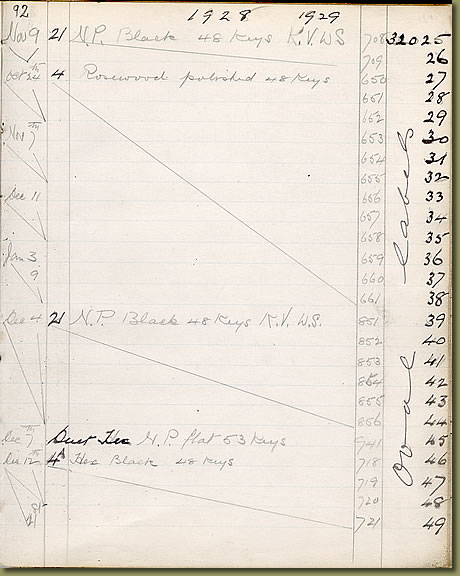 92 1928 1929
Nov 9 21 N.P. Black 48 Keys K.V. WS 708 32025
709 26
Oct 24th 4 Rosewood polished 48 Keys 650 27
651 28
652 29
Nov 7th 653 30
654 31
655 32
Dec 11 656 33
657 34
658 35
Jan 3 659 36
9 660 37
661 38
Dec 4 21 N.P. Black 48 Keys K.V. W.S. 851 39
852 40
853 41
854 42
855 43
856 44
Dec 7th Duet Hex N.P. flat 53 Keys 941 45
Dec 12th 4A Hex Black 48 Keys 718 46
719 47
720 48
721 49
Oval Label